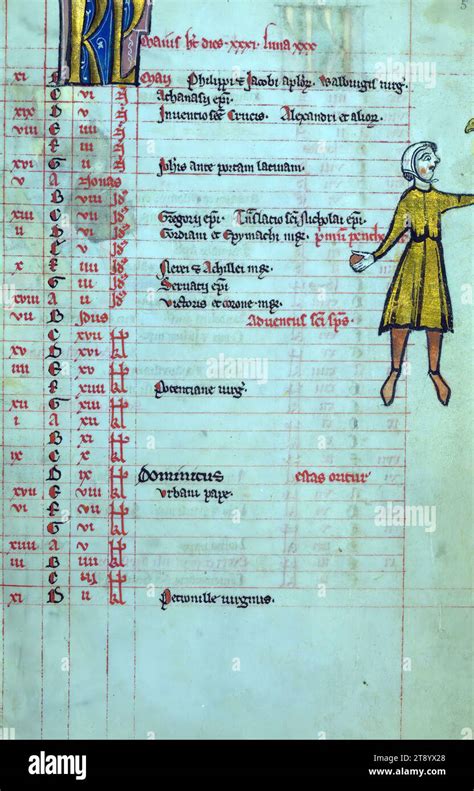 KL Maius ht dies xxxi luna xxx
xi Maii Philippi & Jacobi aplor. Walburgis uirg.
C vi Athanasii epi.
xix D v Inuentio sce Crucis. Alexandri et alior.
viii E iiii
F iii
xvi G ii Johis ante portam latinam.
v A Nonas
B viii Id
xiii C vii Id Gregorii epi. Tnslatio sci Nicholai epi.
ii D vi Id Gordiani & Epymachi mr.
E v Id
x F iiii Id Nerei & Achillei mr.
G iii Id Seruatii epi.
xviii A ii Id Victoris et corone mr.
vii B Idus Aduentus sci sps.
C xvii kl
xv D xvi kl
iiii E xv kl
F xiiii kl Potenciane uirg.
xii G xiii kl
i A xii kl
B xi kl
ix C x kl
D ix kl Dominicus estas oritur
xvii E viii kl Urbani pape.
vi F vii kl
G vi kl
xiiii A v kl
iii B iiii kl
C iii kl
xi D ii kl Petronille uirginis.
5
alamy
Image ID: 2T8YX28
www.alamy.com